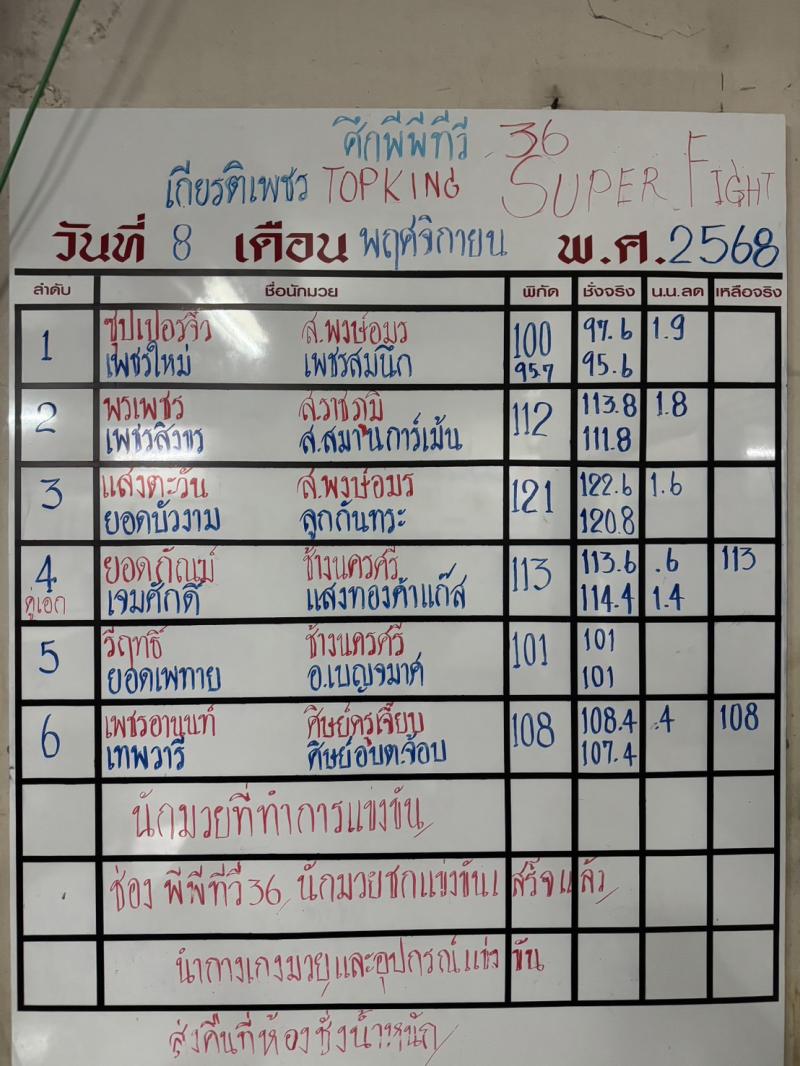 ศึกพีพีทีวี 36
เกียรติเพชร TOPKING SUPER FIGHT
วันที่ 8 เดือน พฤศจิกายน พ.ศ.2568
ลำดับ ชื่อนักมวย พิกัด ชั่งจริง น.น.ลด เหลือจริง
1 ซุปเปอร์จิ๋ว ส.พงษ์อมร 100 97.6 1.9
เพชรใหม่ เพชรสมนึก 95.7 95.6
2 พรเพชร ส.ราชภูมิ 112 113.8 1.8
เพชรสิงขร ส.สมานการ์เม้น 111.8
3 แสงตะวัน ส.พงษ์อมร 121 122.6 1.6
ยอดบัวงาม ลูกกันทระ 120.8
4 ยอดกัณฆ์ ช้างนครศรี 113 113.6 .6 113
คู่เอก เจมศักดิ์ แสงทองค้าแก๊ส 114.4 1.4
5 รีฤทธิ์ ช้างนครศรี 101 101
ยอดเพทาย อ.เบญจมาศ 101
6 เพชรอานนท์ ศิษย์ครูเจี๊ยบ 108 108.4 .4 108
เทพวารี ศิษย์อบต.จ้อบ 107.4
นักมวยที่ทำการแข่งขัน
ช่อง พีพีทีวี 36 นักมวยชกแข่งขันเสร็จแล้ว
นำกางเกงมวยและอุปกรณ์แข่งขัน
ส่งคืนที่ห้องชั่งน้ำหนัก